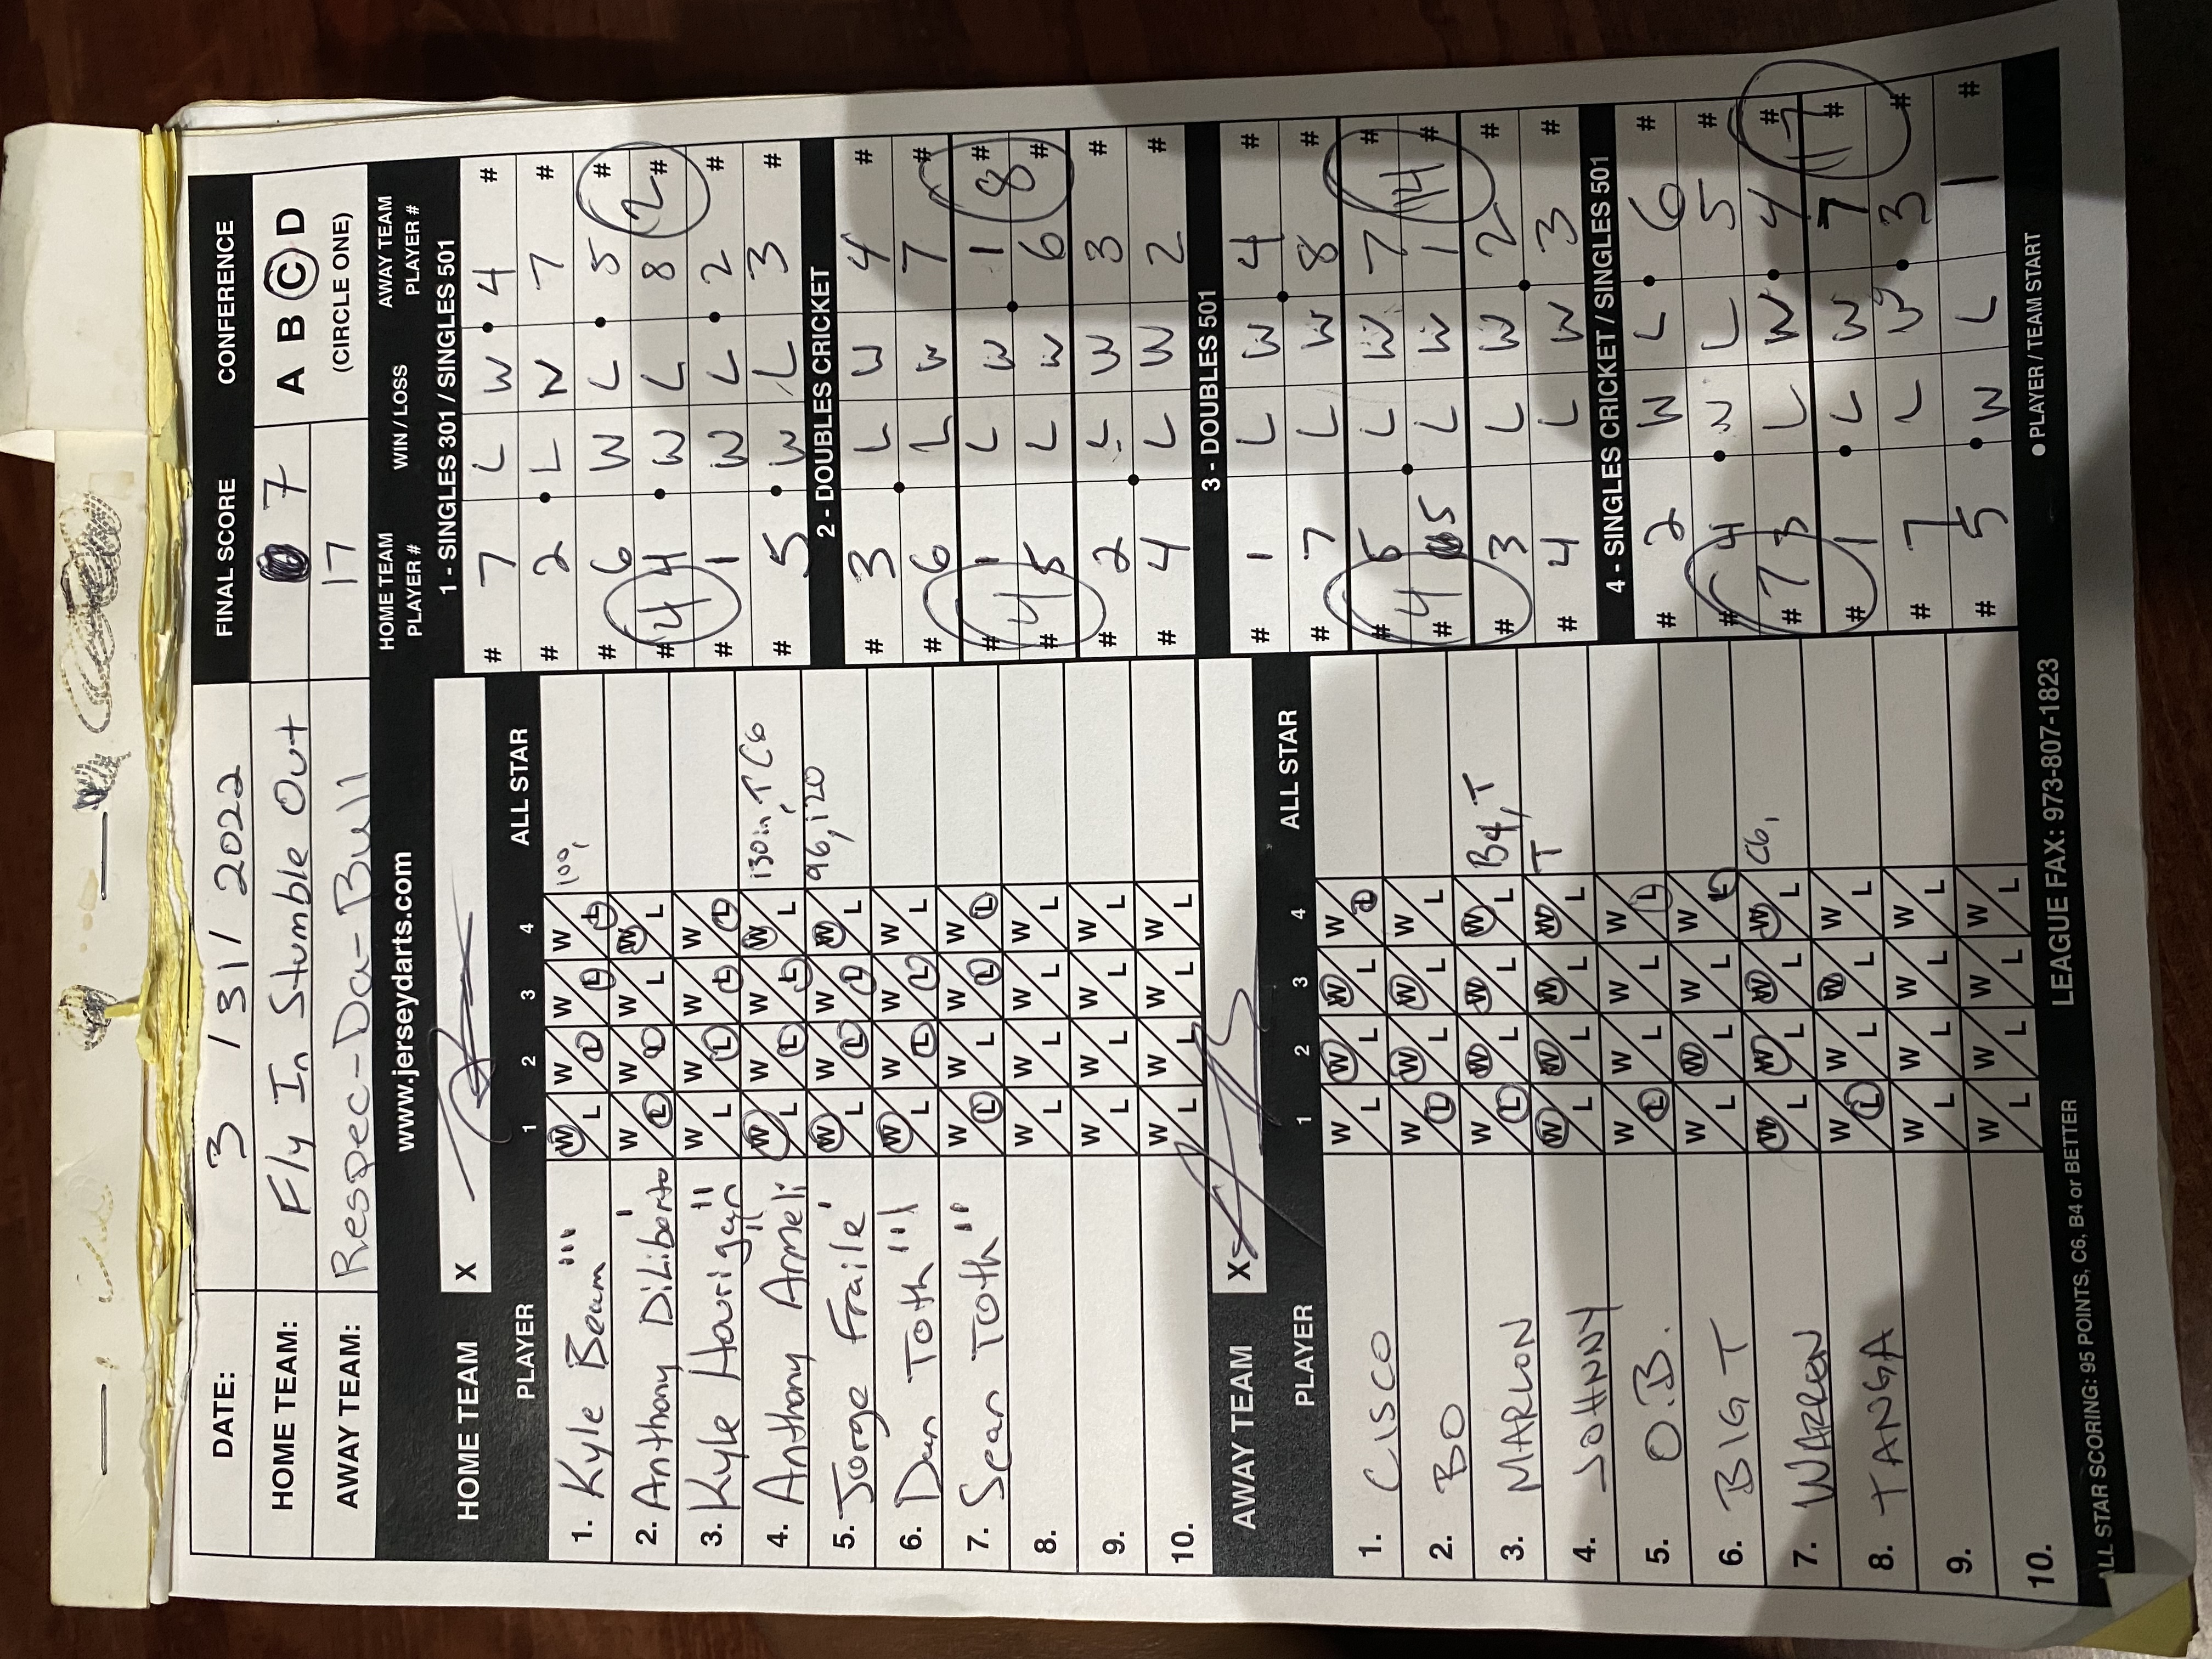 DATE: 3 / 31 / 2022 FINAL SCORE CONFERENCE
HOME TEAM: Fly In Stumble Out 7 A B C D
AWAY TEAM: Respec-Da-Bull 17 (CIRCLE ONE)
www.jerseydarts.com
HOME TEAM X
PLAYER 1 2 3 4 ALL STAR
1. Kyle Beam ''' W/L W/L W/L W/L 100,
2. Anthony DiLiberto ' W/L W/L W/L W/L
3. Kyle Hourigan '' W/L W/L W/L W/L
4. Anthony Armeli '' W/L W/L W/L W/L 130in, T C6
5. Jorge Fraile ' W/L W/L W/L W/L 96, 120
6. Dan Toth ''' W/L W/L W/L W/L
7. Sean Toth '' W/L W/L W/L W/L
8. W/L W/L W/L W/L
9. W/L W/L W/L W/L
10. W/L W/L W/L W/L
AWAY TEAM X
PLAYER 1 2 3 4 ALL STAR
1. CISCO W/L W/L W/L W/L
2. BO W/L W/L W/L W/L
3. MARLON W/L W/L W/L W/L B4, T
4. JOHNNY W/L W/L W/L W/L T
5. O.B. W/L W/L W/L W/L
6. BIG T W/L W/L W/L W/L
7. WARREN W/L W/L W/L W/L C6,
8. TANGA W/L W/L W/L W/L
9. W/L W/L W/L W/L
10. W/L W/L W/L W/L
HOME TEAM PLAYER # WIN / LOSS AWAY TEAM PLAYER #
1 - SINGLES 301 / SINGLES 501
# 7 L W • 4 #
# 2 • L W 7 #
# 6 W L • 5 #
# 4 4 • W L 8 2 #
# 1 W L • 2 #
# 5 • W L 3 #
2 - DOUBLES CRICKET
# 3 L W 4 #
# 6 • L W 7 #
# 1 L W 1 #
# 4 5 L W • 6 8 #
# 2 L W 3 #
# 4 • L W 2 #
3 - DOUBLES 501
# 1 L W • 4 #
# 7 L W 8 #
# 5 L W 7 #
# 4 5 • L W 1 14 #
# 3 L W 2 #
# 4 L W • 3 #
4 - SINGLES CRICKET / SINGLES 501
# 2 W L • 6 #
# 4 • W L 5 #
# 7 3 L W • 4 #
# 1 • L W 7 17 #
# 7 L W • 3 #
# 5 • W L 1 #
• PLAYER / TEAM START
ALL STAR SCORING: 95 POINTS, C6, B4 or BETTER LEAGUE FAX: 973-807-1823